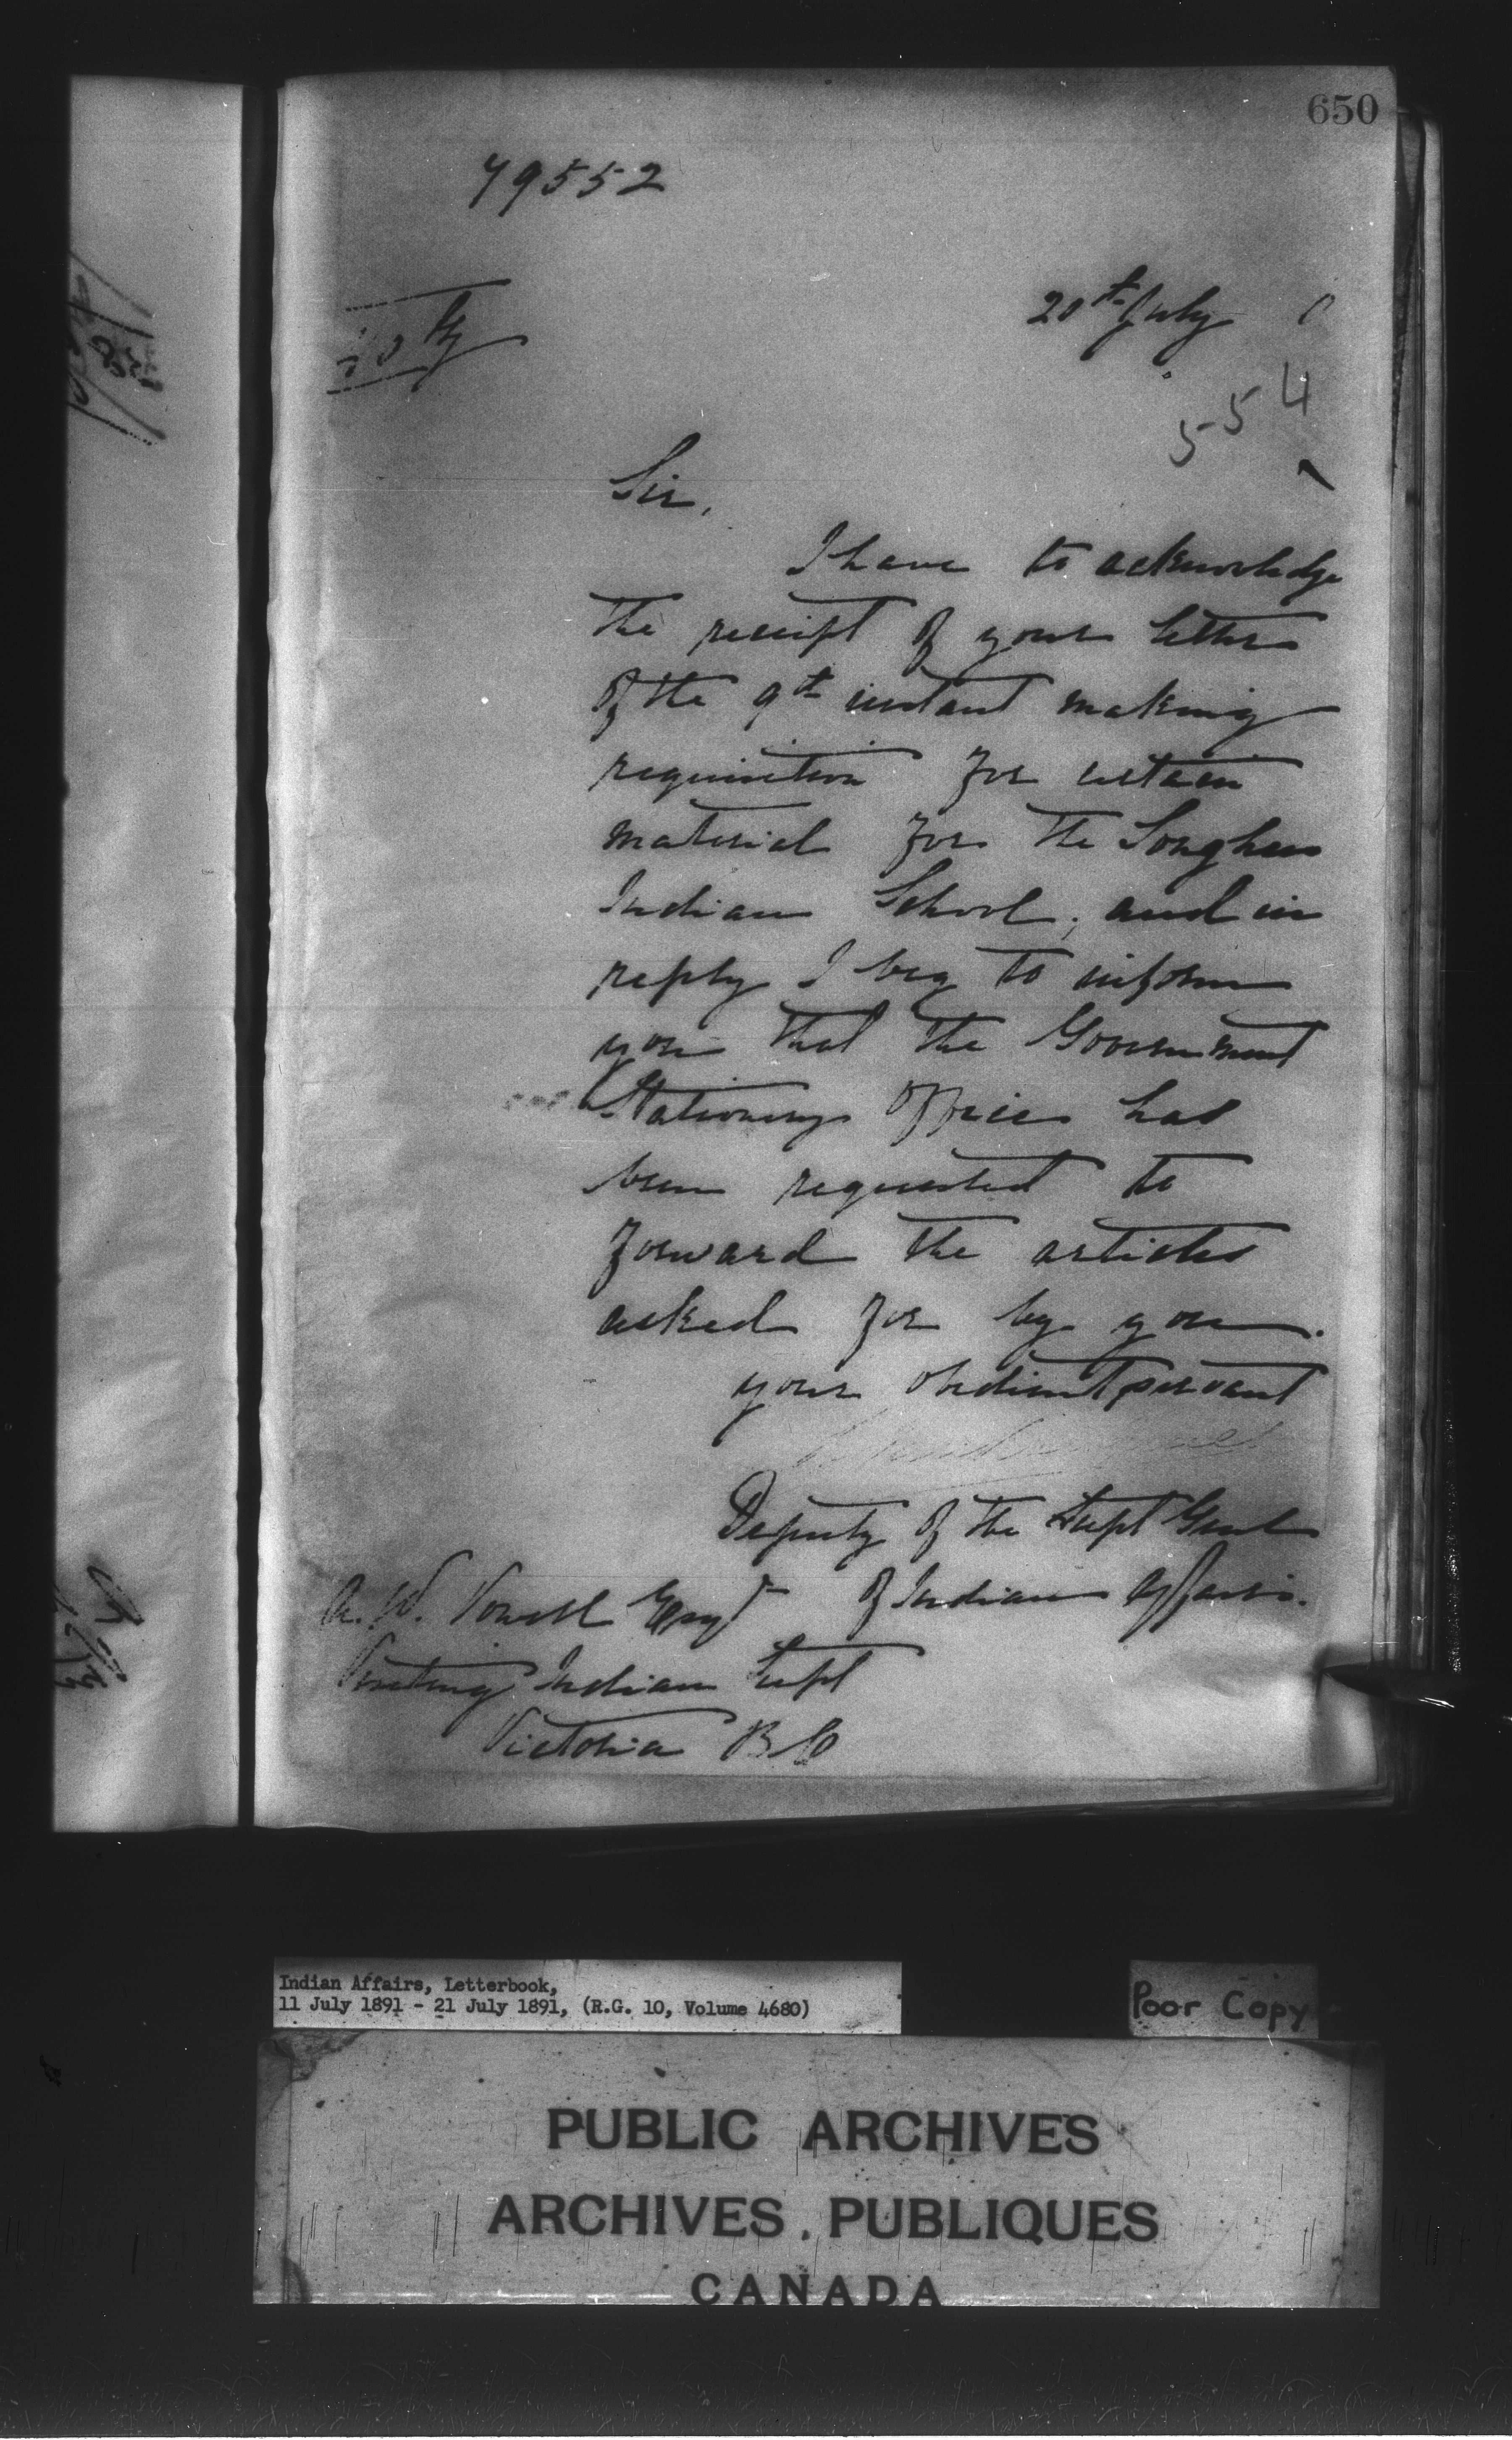 650
79552
20th July
554
Sir,
I have to acknowledge
the receipt of your letter
of the 9th instant making
requisition for certain
material for the Songhees
Indian School; and in
reply I beg to inform
you that the Government
Stationery Office has
been requested to
forward the articles
asked for by you.
your obedient servant
Deputy of the Supt Genl
of Indian Affairs.
A. W. Vowell Esqr
Visiting Indian Supt
Victoria B C
Indian Affairs, Letterbook,
11 July 1891 - 21 July 1891, (R.G. 10, Volume 4680)
Poor Copy
PUBLIC ARCHIVES
ARCHIVES PUBLIQUES
CANADA